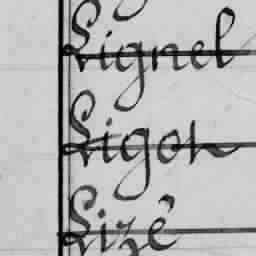 Lignel
Ligot
Lizé